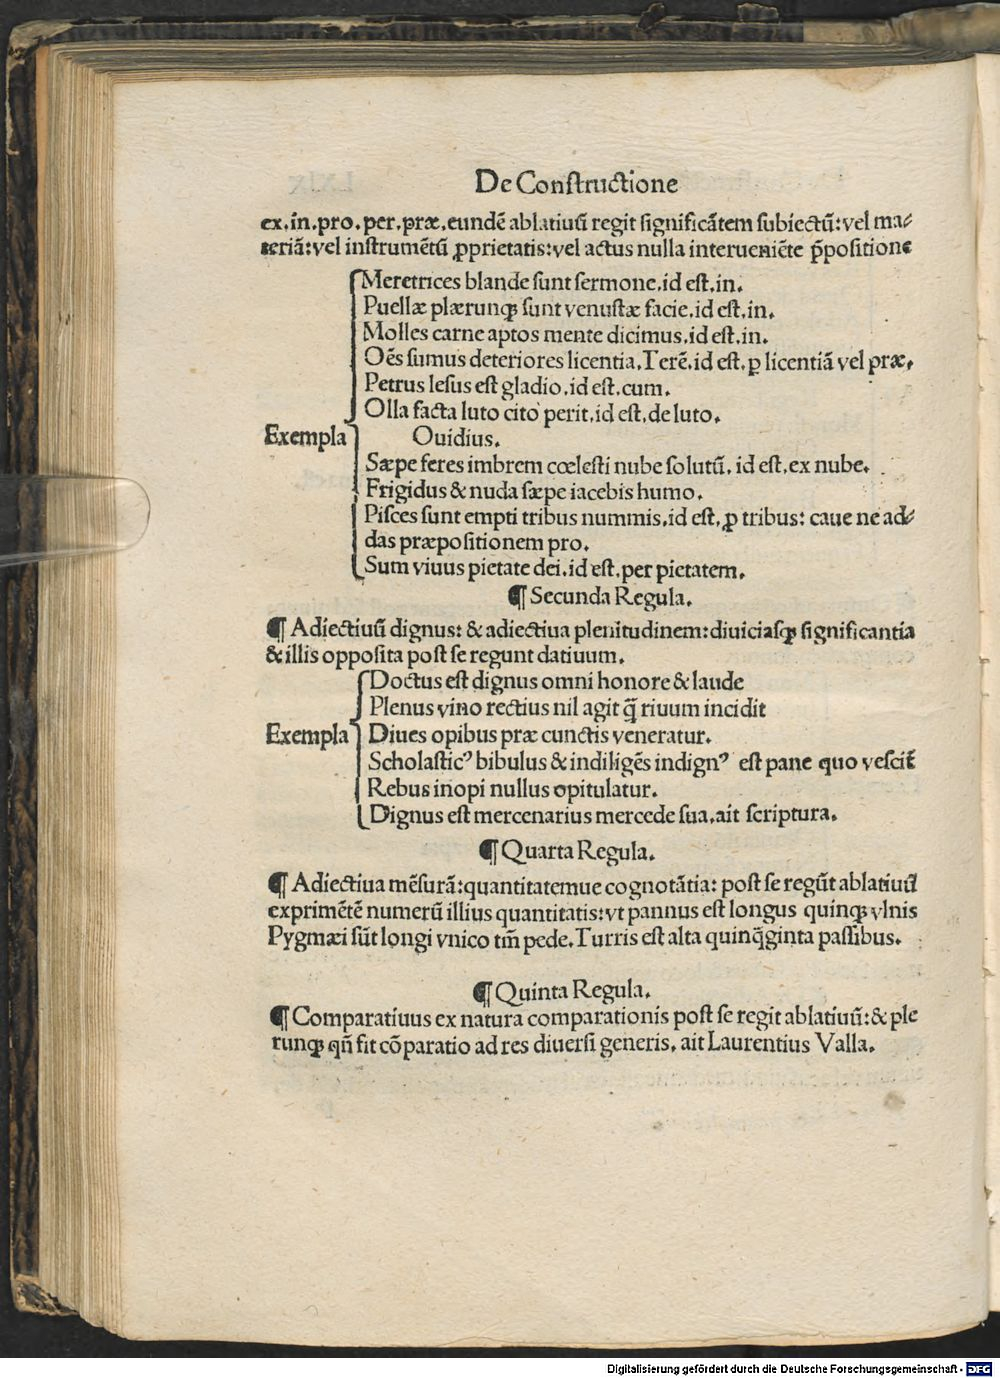 De Constructione
ex.in.pro.per.præ.eundē ablatiuū regit significātem subiectū:vel ma⸗
teriā:vel instrumētū ꝓprietatis:vel actus nulla interueniēte p̄positione
Meretrices blande sunt sermone.id est.in.
Puellæ plærunqꝫ sunt venustæ facie.id est.in.
Molles carne aptos mente dicimus.id est.in.
Oēs sumus deteriores licentia.Terē.id est.ꝑ licentiā vel præ.
Petrus lesus est gladio.id est.cum.
Olla facta luto cito perit.id est.de luto.
Exempla Ouidius.
Sæpe feres imbrem cœlesti nube solutū. id est.ex nube.
Frigidus & nuda sæpe iacebis humo.
Pisces sunt empti tribus nummis.id est.ꝓ tribus: caue ne ad⸗
das præpositionem pro.
Sum viuus pietate dei.id est.per pietatem.
¶ Secunda Regula.
¶ Adiectiuū dignus: & adiectiua plenitudinem:diuiciasqꝫ significantia
& illis opposita post se regunt datiuum.
Doctus est dignus omni honore & laude
Plenus vino rectius nil agit q̄ riuum incidit
Exempla Diues opibus præ cunctis veneratur.
Scholasticꝰ bibulus & indiligēs indignꝰ est pane quo vescit̄
Rebus inopi nullus opitulatur.
Dignus est mercenarius mercede sua.ait scriptura.
¶ Quarta Regula.
¶ Adiectiua mēsurā:quantitatemue cognotātia: post se regūt ablatiuū
exprimētē numerū illius quantitatis:vt pannus est longus quinqꝫ vlnis
Pygmæi sūt longi vnico tm̄ pede.Turris est alta quinq̄ginta passibus.
¶ Quinta Regula.
¶ Comparatiuus ex natura comparationis post se regit ablatiuū:& ple
runqꝫ qn̄ fit cōparatio ad res diuersi generis. ait Laurentius Valla.
Digitalisierung gefördert durch die Deutsche Forschungsgemeinschaft - DFG